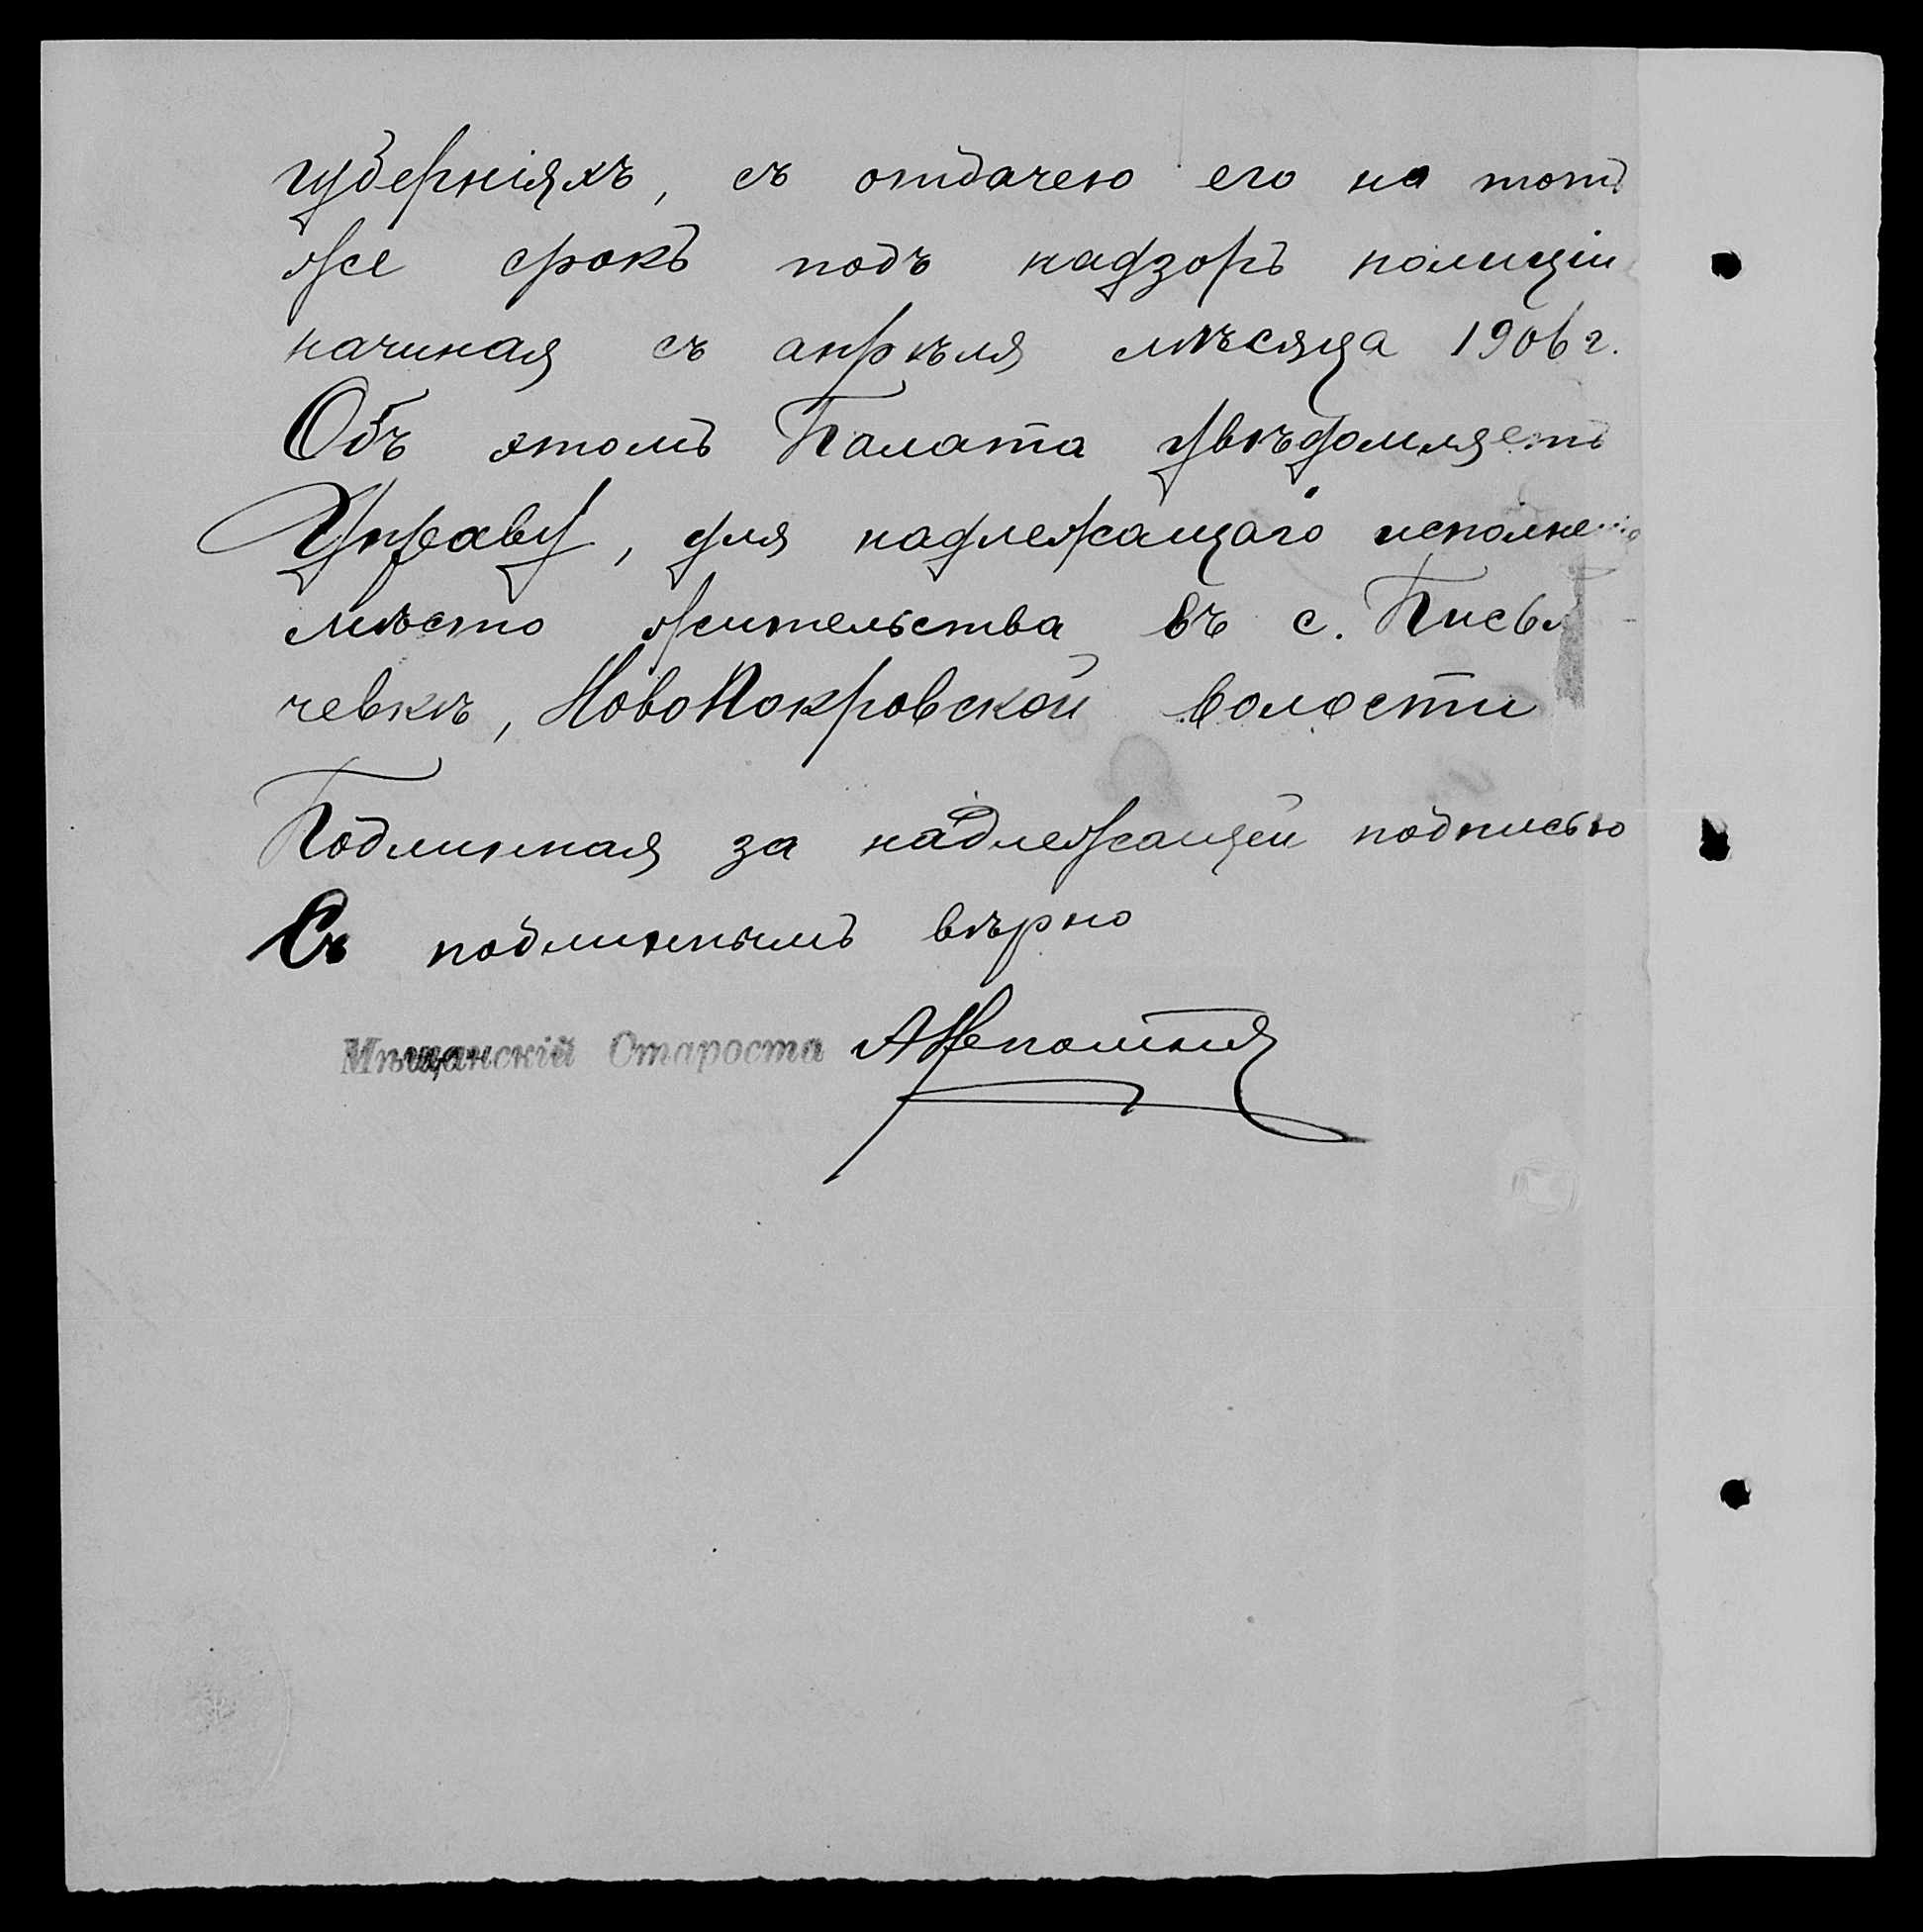 губерніяхъ, съ отдачею его на тотъ
же срокъ подъ надзоръ полиціи
начиная съ апрѣля мѣсяца 1906 г.
Объ этомъ Палата увѣдомляетъ
Управу, для надлежащаго
мѣсто жительства въ с.
чевкѣ, НовоПокровской волости
Подлинная за надлежащей подписью
Съ подлиннымъ вѣрно
Мѣщанскій Староста